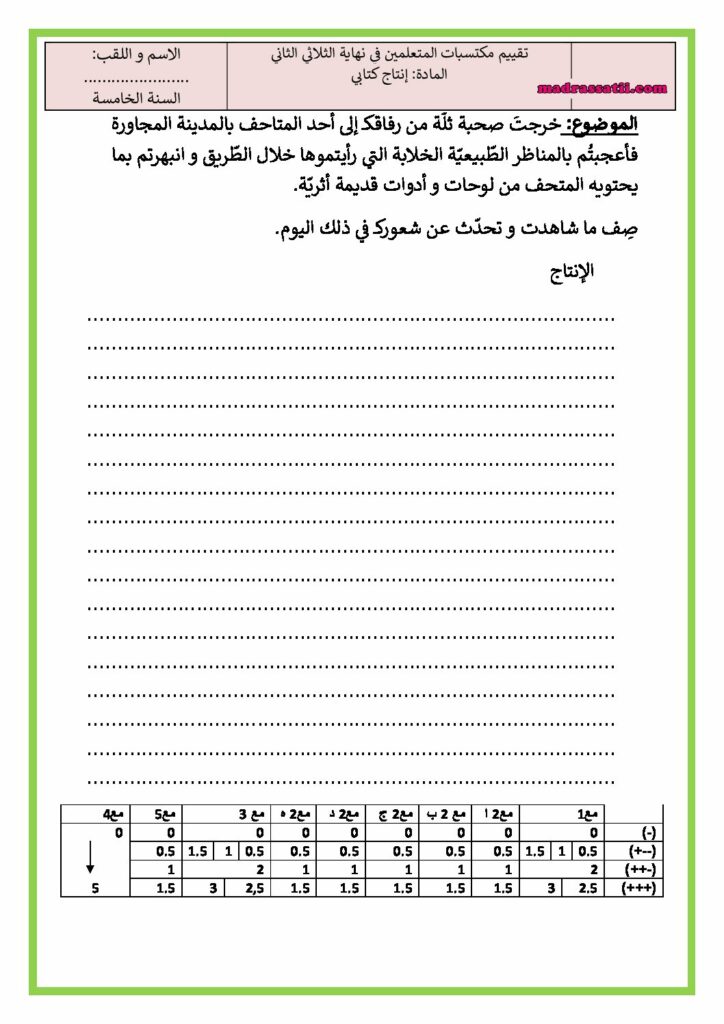 الاسم و اللقب:
......................
السنة الخامسة
تقييم مكتسبات المتعلمين في نهاية الثلاثي الثاني
المادة: إنتاج كتابي
madrassatii.com
الموضوع: خرجتَ صحبة ثلّة من رفاقك إلى أحد المتاحف بالمدينة المجاورة
فأعجبتُم بالمناظر الطّبيعيّة الخلابة التي رأيتموها خلال الطّريق و انبهرتم بما
يحتويه المتحف من لوحات و أدوات قديمة أثريّة.
صِف ما شاهدت و تحدّث عن شعورك في ذلك اليوم.
الإنتاج
مع1 مع2 ا مع 2 ب مع2 ج مع2 د مع2 ه مع 3 مع5 مع4
(-) 0 0 0 0 0 0 0 0 0
(+--) 0.5 1 1.5 0.5 0.5 0.5 0.5 0.5 0.5 1 1.5 0.5
(++-) 2 1 1 1 1 1 2 1
(+++) 2.5 3 1.5 1.5 1.5 1.5 1.5 2,5 3 1.5 5